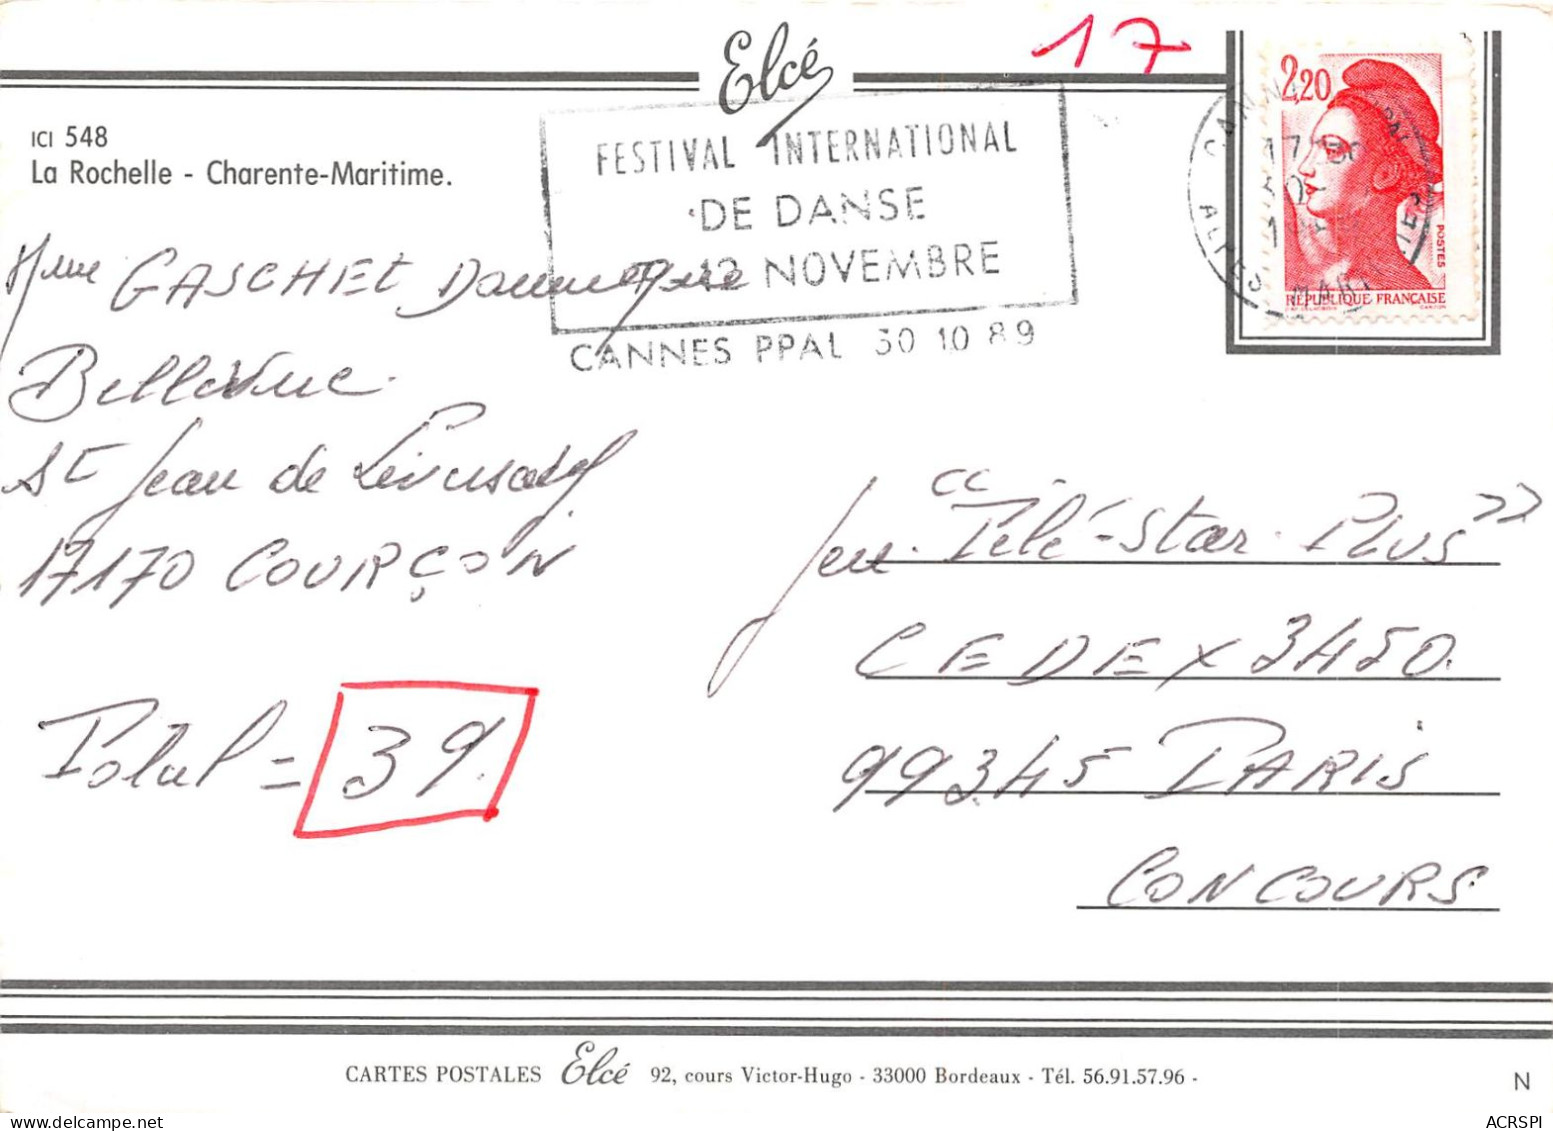 Elcé
17
ICI 548
La Rochelle - Charente-Maritime.
FESTIVAL INTERNATIONAL
DE DANSE
12 NOVEMBRE
CANNES PPAL 30 10 89
2,20
POSTES
RÉPUBLIQUE FRANÇAISE
ALPES
Mme GASCHET Dominique
Bellevue
St Jean de Liversay
17170 COURÇON
Total = 39.
Jeu "Télé-Star-Plus"
CEDEX 3450.
99345 PARIS
CONCOURS
CARTES POSTALES Elcé 92, cours Victor-Hugo - 33000 Bordeaux - Tél. 56.91.57.96 -
N
ACRSPI